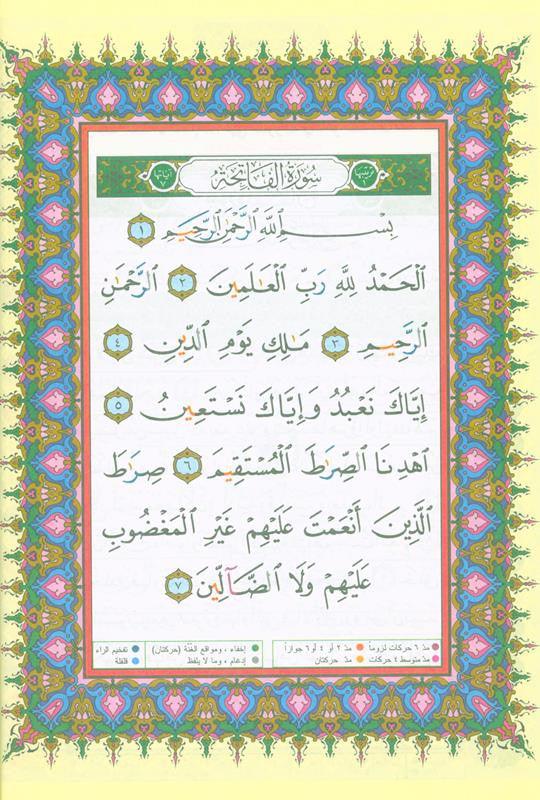 ترتيبها ١ سُورَةُ الفَاتِحَةِ آياتها ٧
بِسْمِ ٱللَّهِ ٱلرَّحْمَٰنِ ٱلرَّحِيمِ ١
ٱلْحَمْدُ لِلَّهِ رَبِّ ٱلْعَٰلَمِينَ ٢ ٱلرَّحْمَٰنِ
ٱلرَّحِيمِ ٣ مَٰلِكِ يَوْمِ ٱلدِّينِ ٤
إِيَّاكَ نَعْبُدُ وَإِيَّاكَ نَسْتَعِينُ ٥
ٱهْدِنَا ٱلصِّرَٰطَ ٱلْمُسْتَقِيمَ ٦ صِرَٰطَ
ٱلَّذِينَ أَنْعَمْتَ عَلَيْهِمْ غَيْرِ ٱلْمَغْضُوبِ
عَلَيْهِمْ وَلَا ٱلضَّآلِّينَ ٧
مدّ ٦ حركات لزوماً مدّ ٢ أو ٤ أو ٦ جوازاً إخفاء ، ومواقع الغُنَّة (حركتان) تفخيم الراء
مدّ متوسط ٤ حركات مدّ حركتان إدغام ، وما لا يلفظ قلقلة